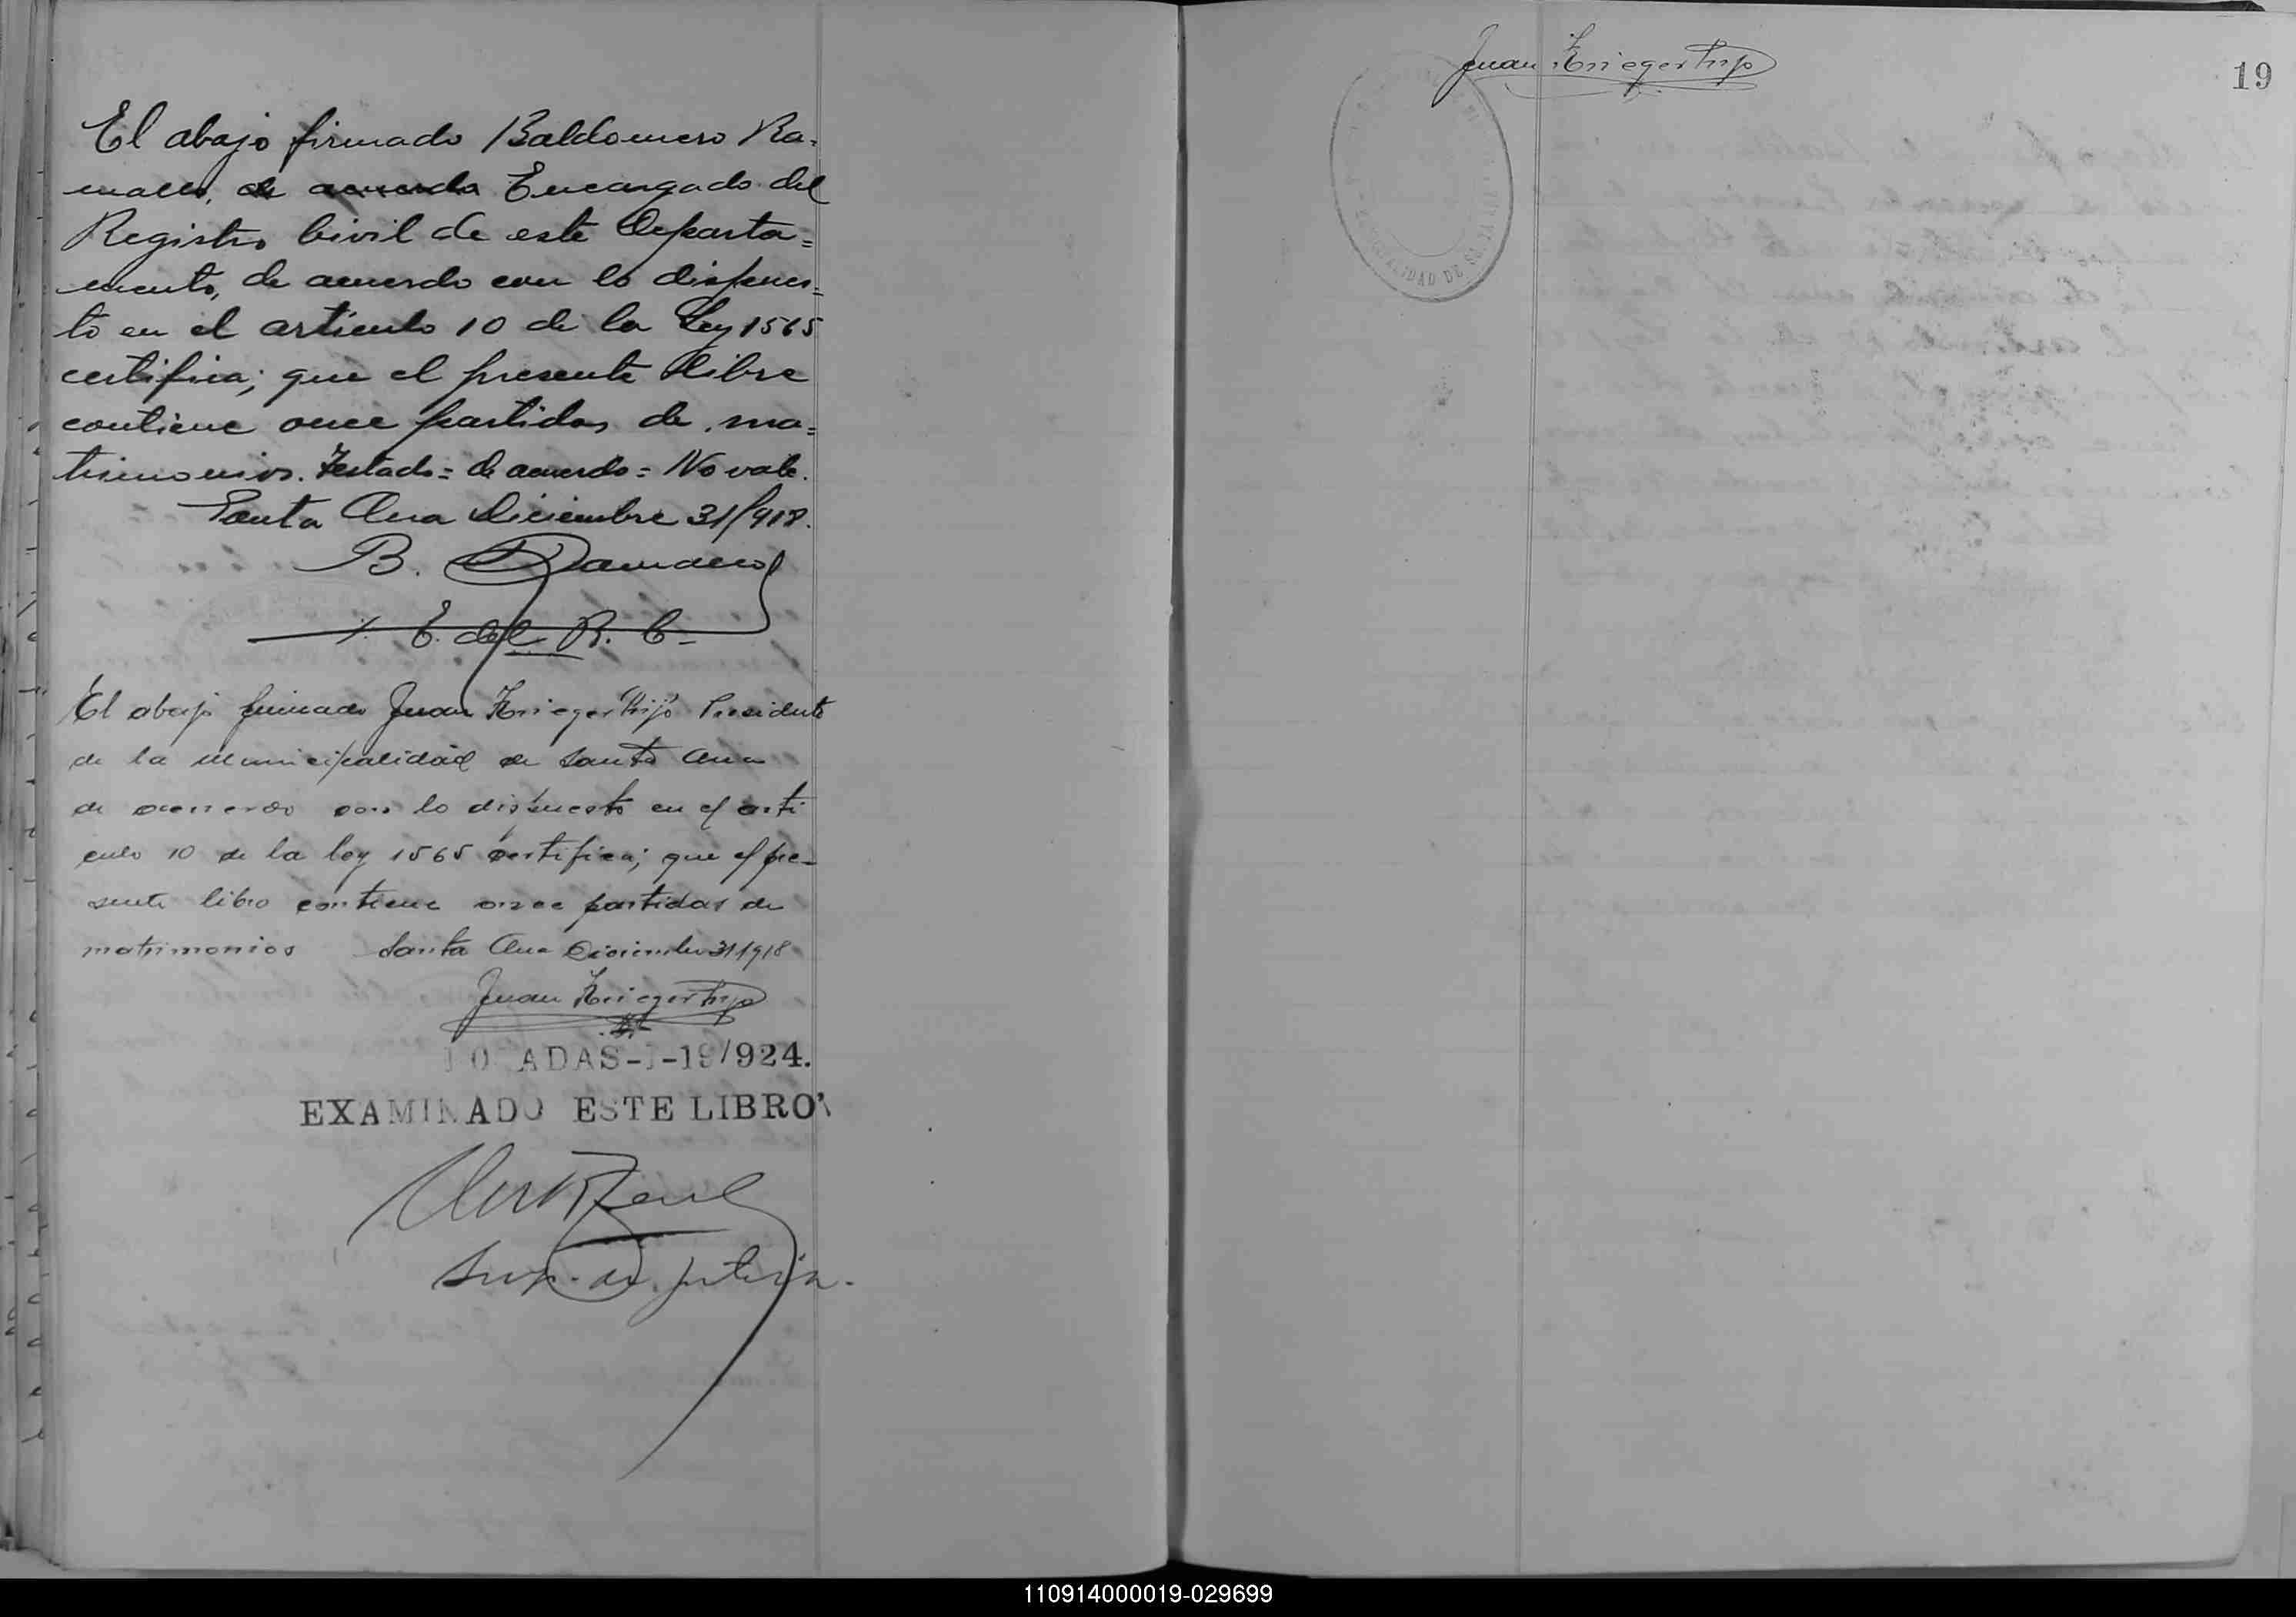 El abajo firmado Baldomero Ra=
mallo, de acuerdo Encargado del
Registro Civil de este Departa=
mento, de acuerdo con lo dispues=
to en el artículo 10 de la Ley 1565
certifica; que el presente Libro
contiene once partidas de ma=
trimonios. Testado = de acuerdo = No vale.
Santa Ana Diciembre 31/918.
B. Ramallo
E. del R. C-
El abajo firmado Juan Krieger Hijo Presidente
de la Municipalidad de Santa Ana
de acuerdo con lo dispuesto en el arti
culo 10 de la ley 1565 certifica; que el pre-
sente libro contiene once partidas de
matrimonios Santa Ana Diciembre 31 1918
Juan Krieger hijo
ADAS- -19/924.
EXAMINADO ESTE LIBRO
Juan Krieger hijo
19
110914000019-029699